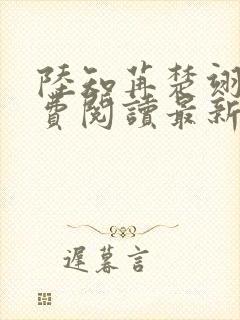 陸知苒楚翊
費閱讀最新
遲暮言